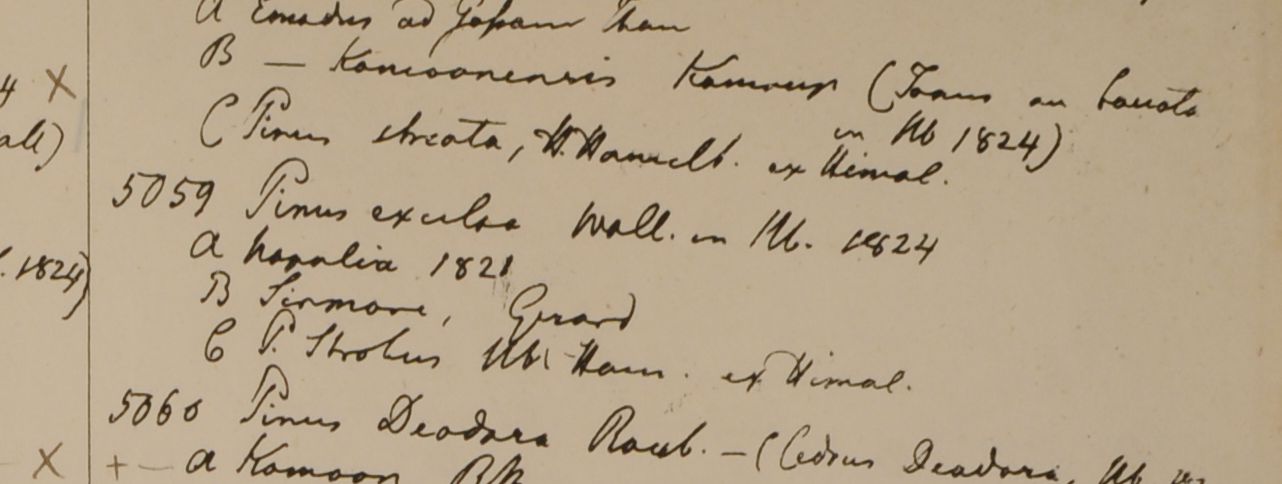 4 X
all)
. 1824)
X
a Emodus ad Gossam Than
B — Kamoonensis Kamoup (Taxus an baccata
in Hb 1824)
C Pinus stricta, H. Hamilt. ex Himal.
5059 Pinus excelsa Wall. in Hb. 1824
a Napalia 1821
B Sirmore, Gerard
C P. Strobus Hb. Ham. ex Himal.
5060 Pinus Deodara Roxb. — (Cedrus Deodara, Hb
+ — a Kamoon RB